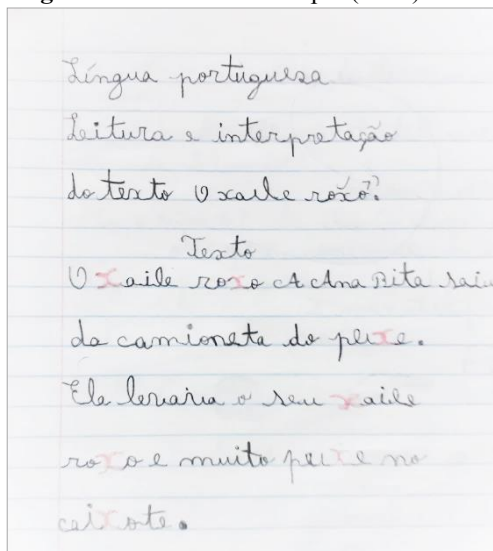 Língua portuguesa
Leitura e interpretação
do texto O xaile roxo?
Texto
O xaile roxo A Ana Rita sai
da camioneta do peixe.
Ela levaria o seu xaile
roxo e muito peixe no
caixote.